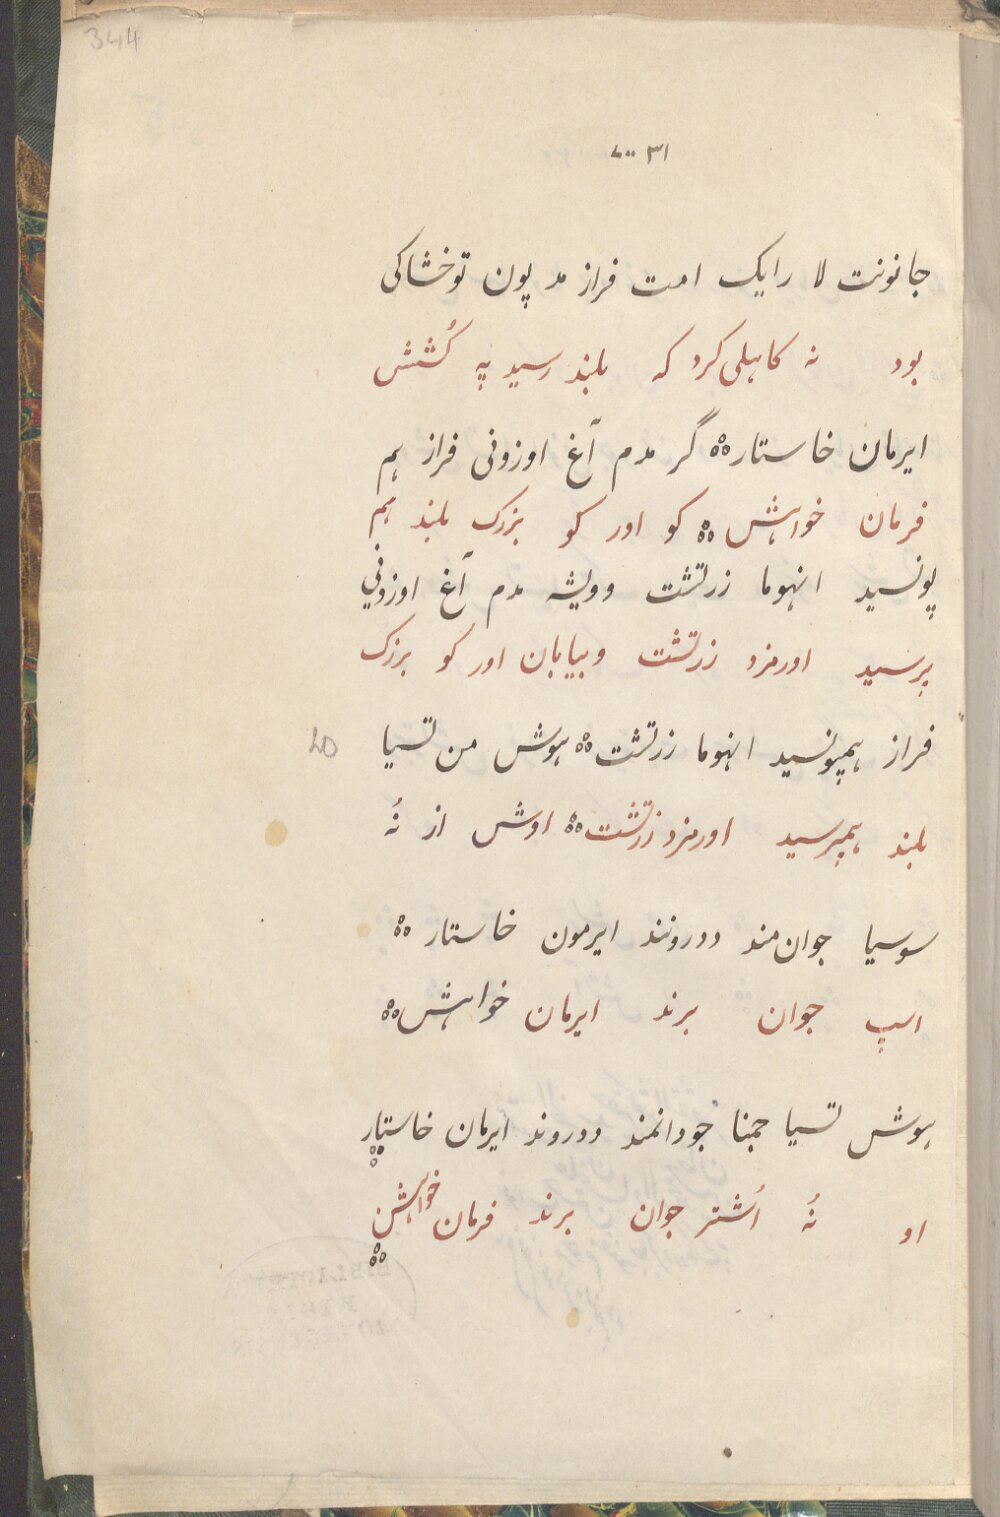 344
۳۱
جانونت لا رایک امت فراز مد پون توخشاکی
بود نه کاهلی کرد که بلند رسید په کُشش
ایرمان خاستار ه‍ گر مدم آغ اوزونی فراز هم
فرمان خواهش ه‍ کو اور کو بزرک بلند هم
پونسید انهوما زرتشت وویشه مدم آغ اوزونی
پرسید اورمزد زرتشت وبیابان اور کو بزرک
فراز همپونسید انهوما زرتشت ه‍ هوش من تسیا
20
بلند همپرسید اورمزد زرتشت ه‍ اوش از نُه
سوسیا جوان‌مند دورونند ایرمون خاستار ه‍
اسپ جوان برند ایرمان خواهش ه‍
هوش تسیا جمنا جودانمند دوروند ایرمان خاستار
او نُه اُشتر جوان برند فرمان خواهش